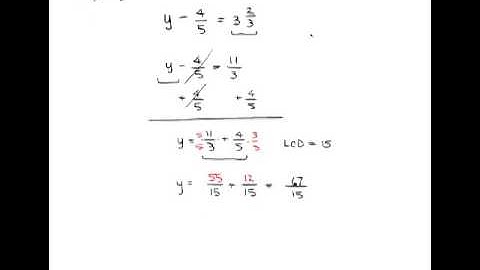 y - 4/5 = 3 2/3
y - 4/5 = 11/3
+ 4/5 + 4/5
y = 5/5 · 11/3 + 4/5 · 3/3 LCD = 15
y = 55/15 + 12/15 = 67/15